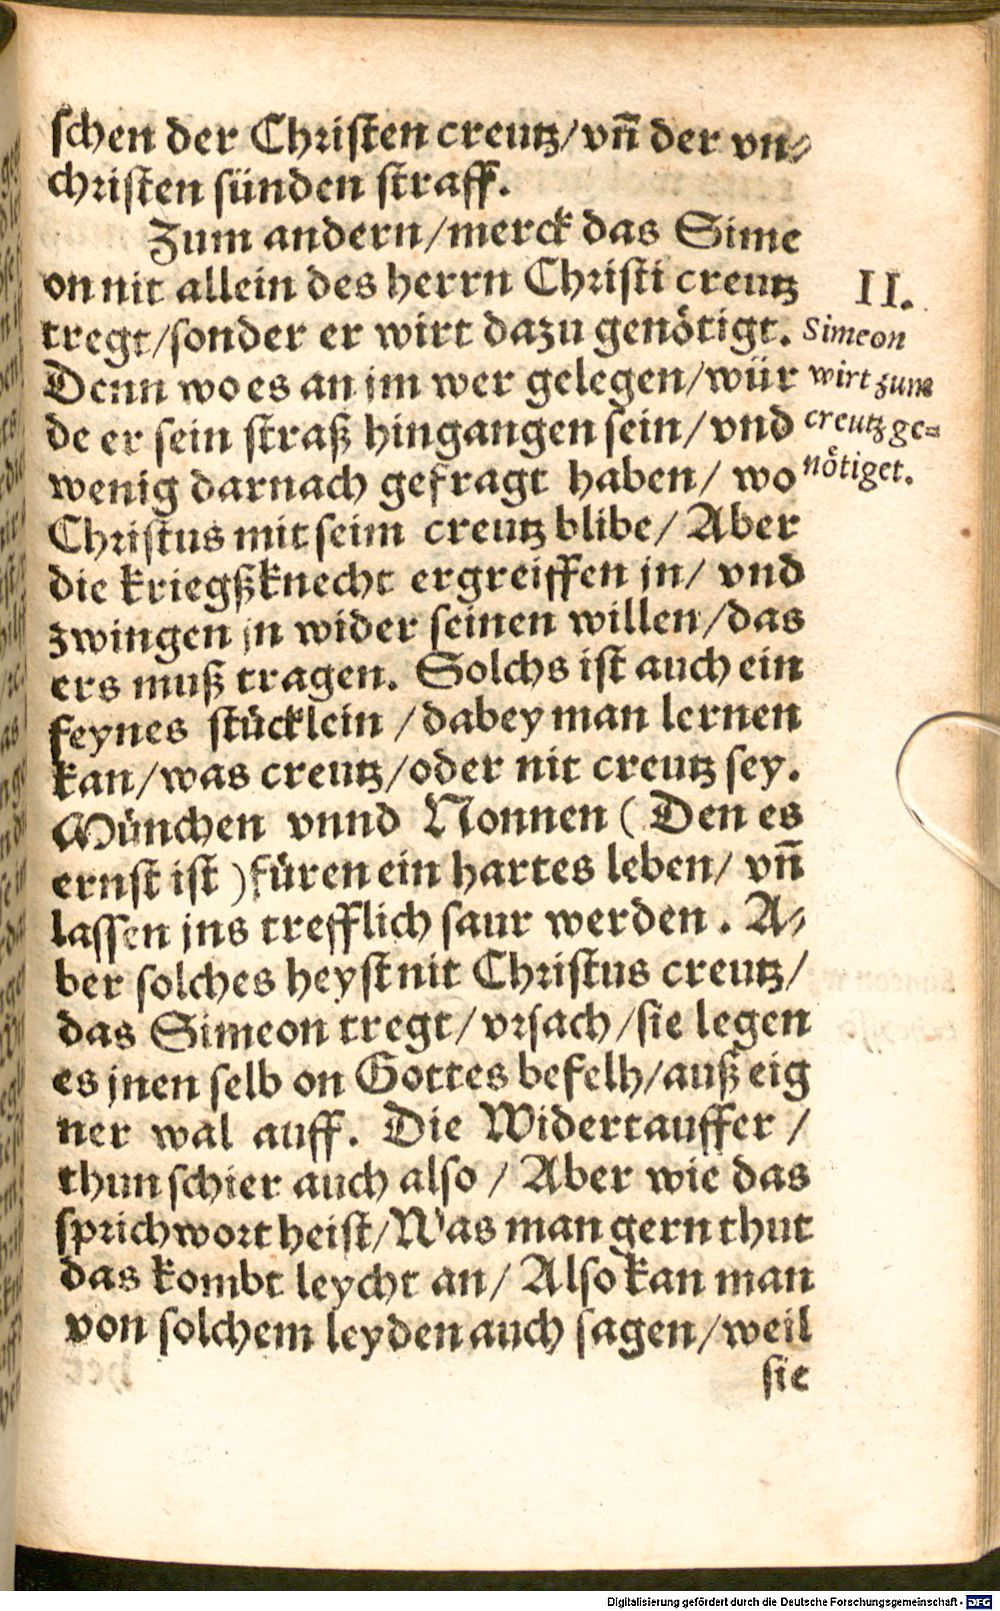 schen der Christen creutz/ vñ der vn⸗
christen sünden straff.
Zum andern/ merck das Sime
on nit allein des herrn Christi creutz
tregt/ sonder er wirt dazu genötigt.
Denn wo es an jm wer gelegen/ wür
de er sein straß hingangen sein/ vnd
wenig darnach gefragt haben/ wo
Christus mit seim creutz blibe/ Aber
die kriegßknecht ergreiffen jn/ vnd
zwingen jn wider seinen willen/ das
ers muß tragen. Solchs ist auch ein
feynes stücklein / dabey man lernen
kan/ was creutz/ oder nit creutz sey.
München vnnd Nonnen ( Den es
ernst ist ) füren ein hartes leben/ vñ
lassen jns trefflich saur werden. A⸗
ber solches heyst nit Christus creutz/
das Simeon tregt/ vrsach/ sie legen
es jnen selb on Gottes befelh/ auß eig
ner wal auff. Die Widertauffer /
thun schier auch also / Aber wie das
sprichwort heist/ Was man gern thut
das kombt leycht an/ Also kan man
von solchem leyden auch sagen/ weil
sie
II.
Simeon
wirt zum
creutz ge⸗
nötiget.
Digitalisierung gefördert durch die Deutsche Forschungsgemeinschaft - DFG